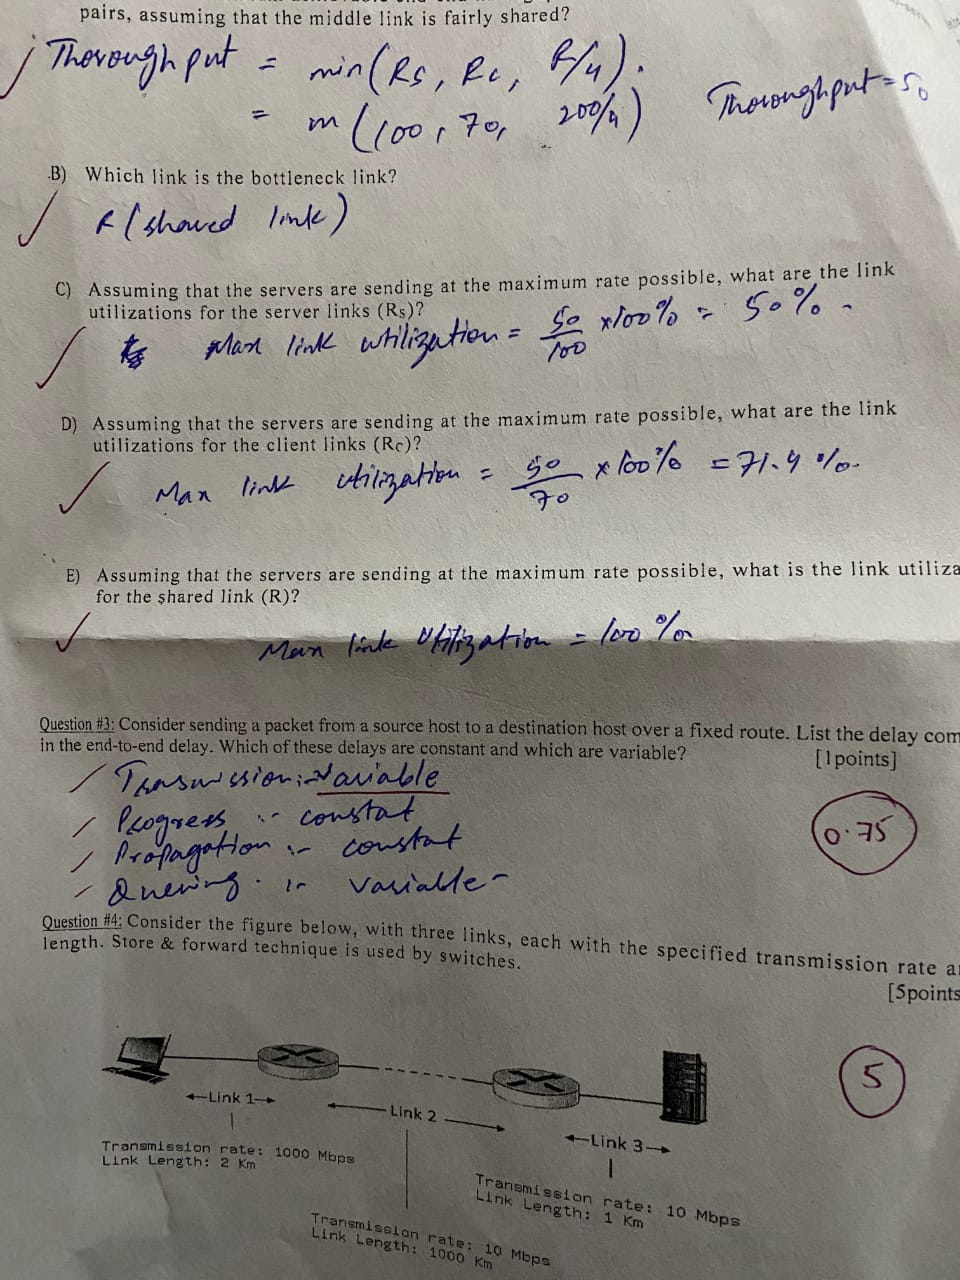 pairs, assuming that the middle link is fairly shared?
Thorough put = min(Rs, Rc, R/4).
= m (100, 70, 200/4) Thoroughput = 50
B) Which link is the bottleneck link?
R (shared link)
C) Assuming that the servers are sending at the maximum rate possible, what are the link
utilizations for the server links (Rs)?
Max link utilization = 50/100 x100% = 50%.
D) Assuming that the servers are sending at the maximum rate possible, what are the link
utilizations for the client links (Rc)?
Max link utilization = 50/70 x 100% = 71.4 %.
E) Assuming that the servers are sending at the maximum rate possible, what is the link utiliza
for the shared link (R)?
Max link Utilization = 100 %
Question #3: Consider sending a packet from a source host to a destination host over a fixed route. List the delay com
in the end-to-end delay. Which of these delays are constant and which are variable?
[1points]
Transmission:- Variable
Progress :- constat
0.75
Propagation :- constat
Quewing :- variable
Question #4: Consider the figure below, with three links, each with the specified transmission rate a
length. Store & forward technique is used by switches.
[5points
5
Link 1
Link 2
Link 3
Transmission rate: 1000 Mbps
Link Length: 2 Km
Transmission rate: 10 Mbps
Link Length: 1 Km
Transmission rate: 10 Mbps
Link Length: 1000 Km